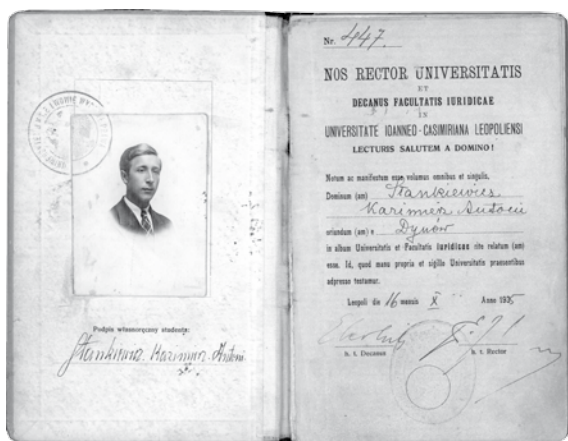 Podpis własnoręczny studenta:
Stankiewicz Kazimierz Antoni
Nr. 447.
NOS RECTOR UNIVERSITATIS
ET
DECANUS FACULTATIS IURIDICAE
IN
UNIVERSITATE IOANNEO-CASIMIRIANA LEOPOLIENSI
LECTURIS SALUTEM A DOMINO!
Notum ac manifestum esse volumus omnibus et singulis,
Dominum (am) Stankiewicz
Kazimierz Antoni
oriundum (am) e Dynów
in album Universitatis et Facultatis iuridicae rite relatum (am)
esse. Id, quod manu propria et sigillo Universitatis praesentibus
adpresso testamur.
Leopoli die 16 mensis X Anno 1935
h. t. Decanus h. t. Rector